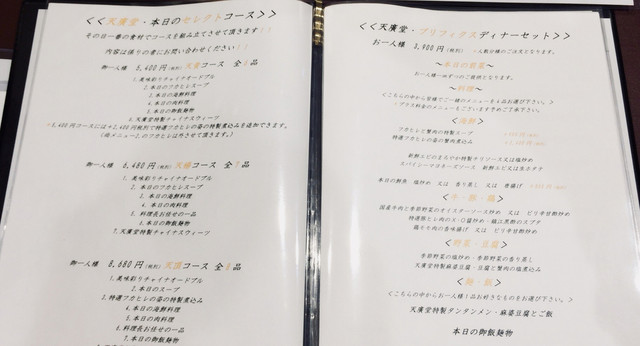 <<天廣堂・本日のセレクトコース>>
その日一番の食材でコースを組み立てさせて頂きます!!
内容は係りの者にお問い合わせください!!
御一人様 5,400円(税別) コース 全 品
1.美味彩りチャイナオードブル
2.本日のフカヒレスープ
3.本日の海鮮料理
4.本日の肉料理
5.本日の御飯麺物
6.天廣堂特製チャイナスウィーツ
+2,400円税別で特選フカヒレの姿の特製煮込みを追加できます。
御一人様 6,480円(税別) コース 全 品
1.美味彩りチャイナオードブル
2.本日のフカヒレスープ
3.本日の海鮮料理
4.本日の肉料理
5.料理長お任せの一品
6.本日の御飯麺物
7.天廣堂特製チャイナスウィーツ
御一人様 8,680円(税別) 天頂コース 全 品
1.美味彩りチャイナオードブル
2.本日のスープ
3.特選フカヒレの姿の特製煮込み
4.本日の海鮮料理
5.本日の肉料理
6.料理長お任せの一品
7.本日の御飯麺物
<<天廣堂・プリフィックスディナーセット>>
お一人様 3,900円(税別) ・人数分様のご注文となります。
~本日の前菜~
お一人様一皿ずつのご提供となります。
~料理~
<こちらの中から皆様でご一緒のメニューを4品お選び下さい。>
プラス料金のメニューもございますのでご了承下さい。
<海鮮>
フカヒレと蟹肉の特製スープ
特選フカヒレの姿と蟹肉の煮込み
新鮮エビのまろやか特製チリソース又は塩炒め
スパイシーマヨネーズソース 新鮮エビ又は生ホタテ
本日の鮮魚 塩炒め 又は 香り蒸し 又は 唐揚げ
<牛・豚・鶏>
国産牛肉と季節野菜のオイスターソース炒め 又は ピリ辛豆鼓炒め
特選豚ヒレ肉のX・O醤炒め・鎮江黒酢のスブタ
鶏モモ肉の香味揚げ 又は ピリ辛豆鼓炒め
<野菜・豆腐>
季節野菜の塩炒め・季節野菜の香り蒸し
天廣堂特製麻婆豆腐・豆腐と蟹肉の塩煮込み
<麺・飯>
<こちらの中からお一人様1品お好きなものをお選び下さい。>
天廣堂特製タンタンメン・麻婆豆腐とご飯
本日の御飯麺物